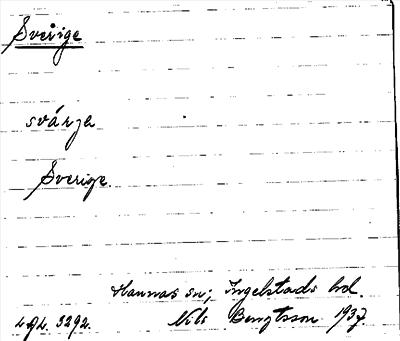 Sverige
svárja
Sverige.
Hannas sn; Ingelstads hd.
Nils Bengtsson 1937.
3292.